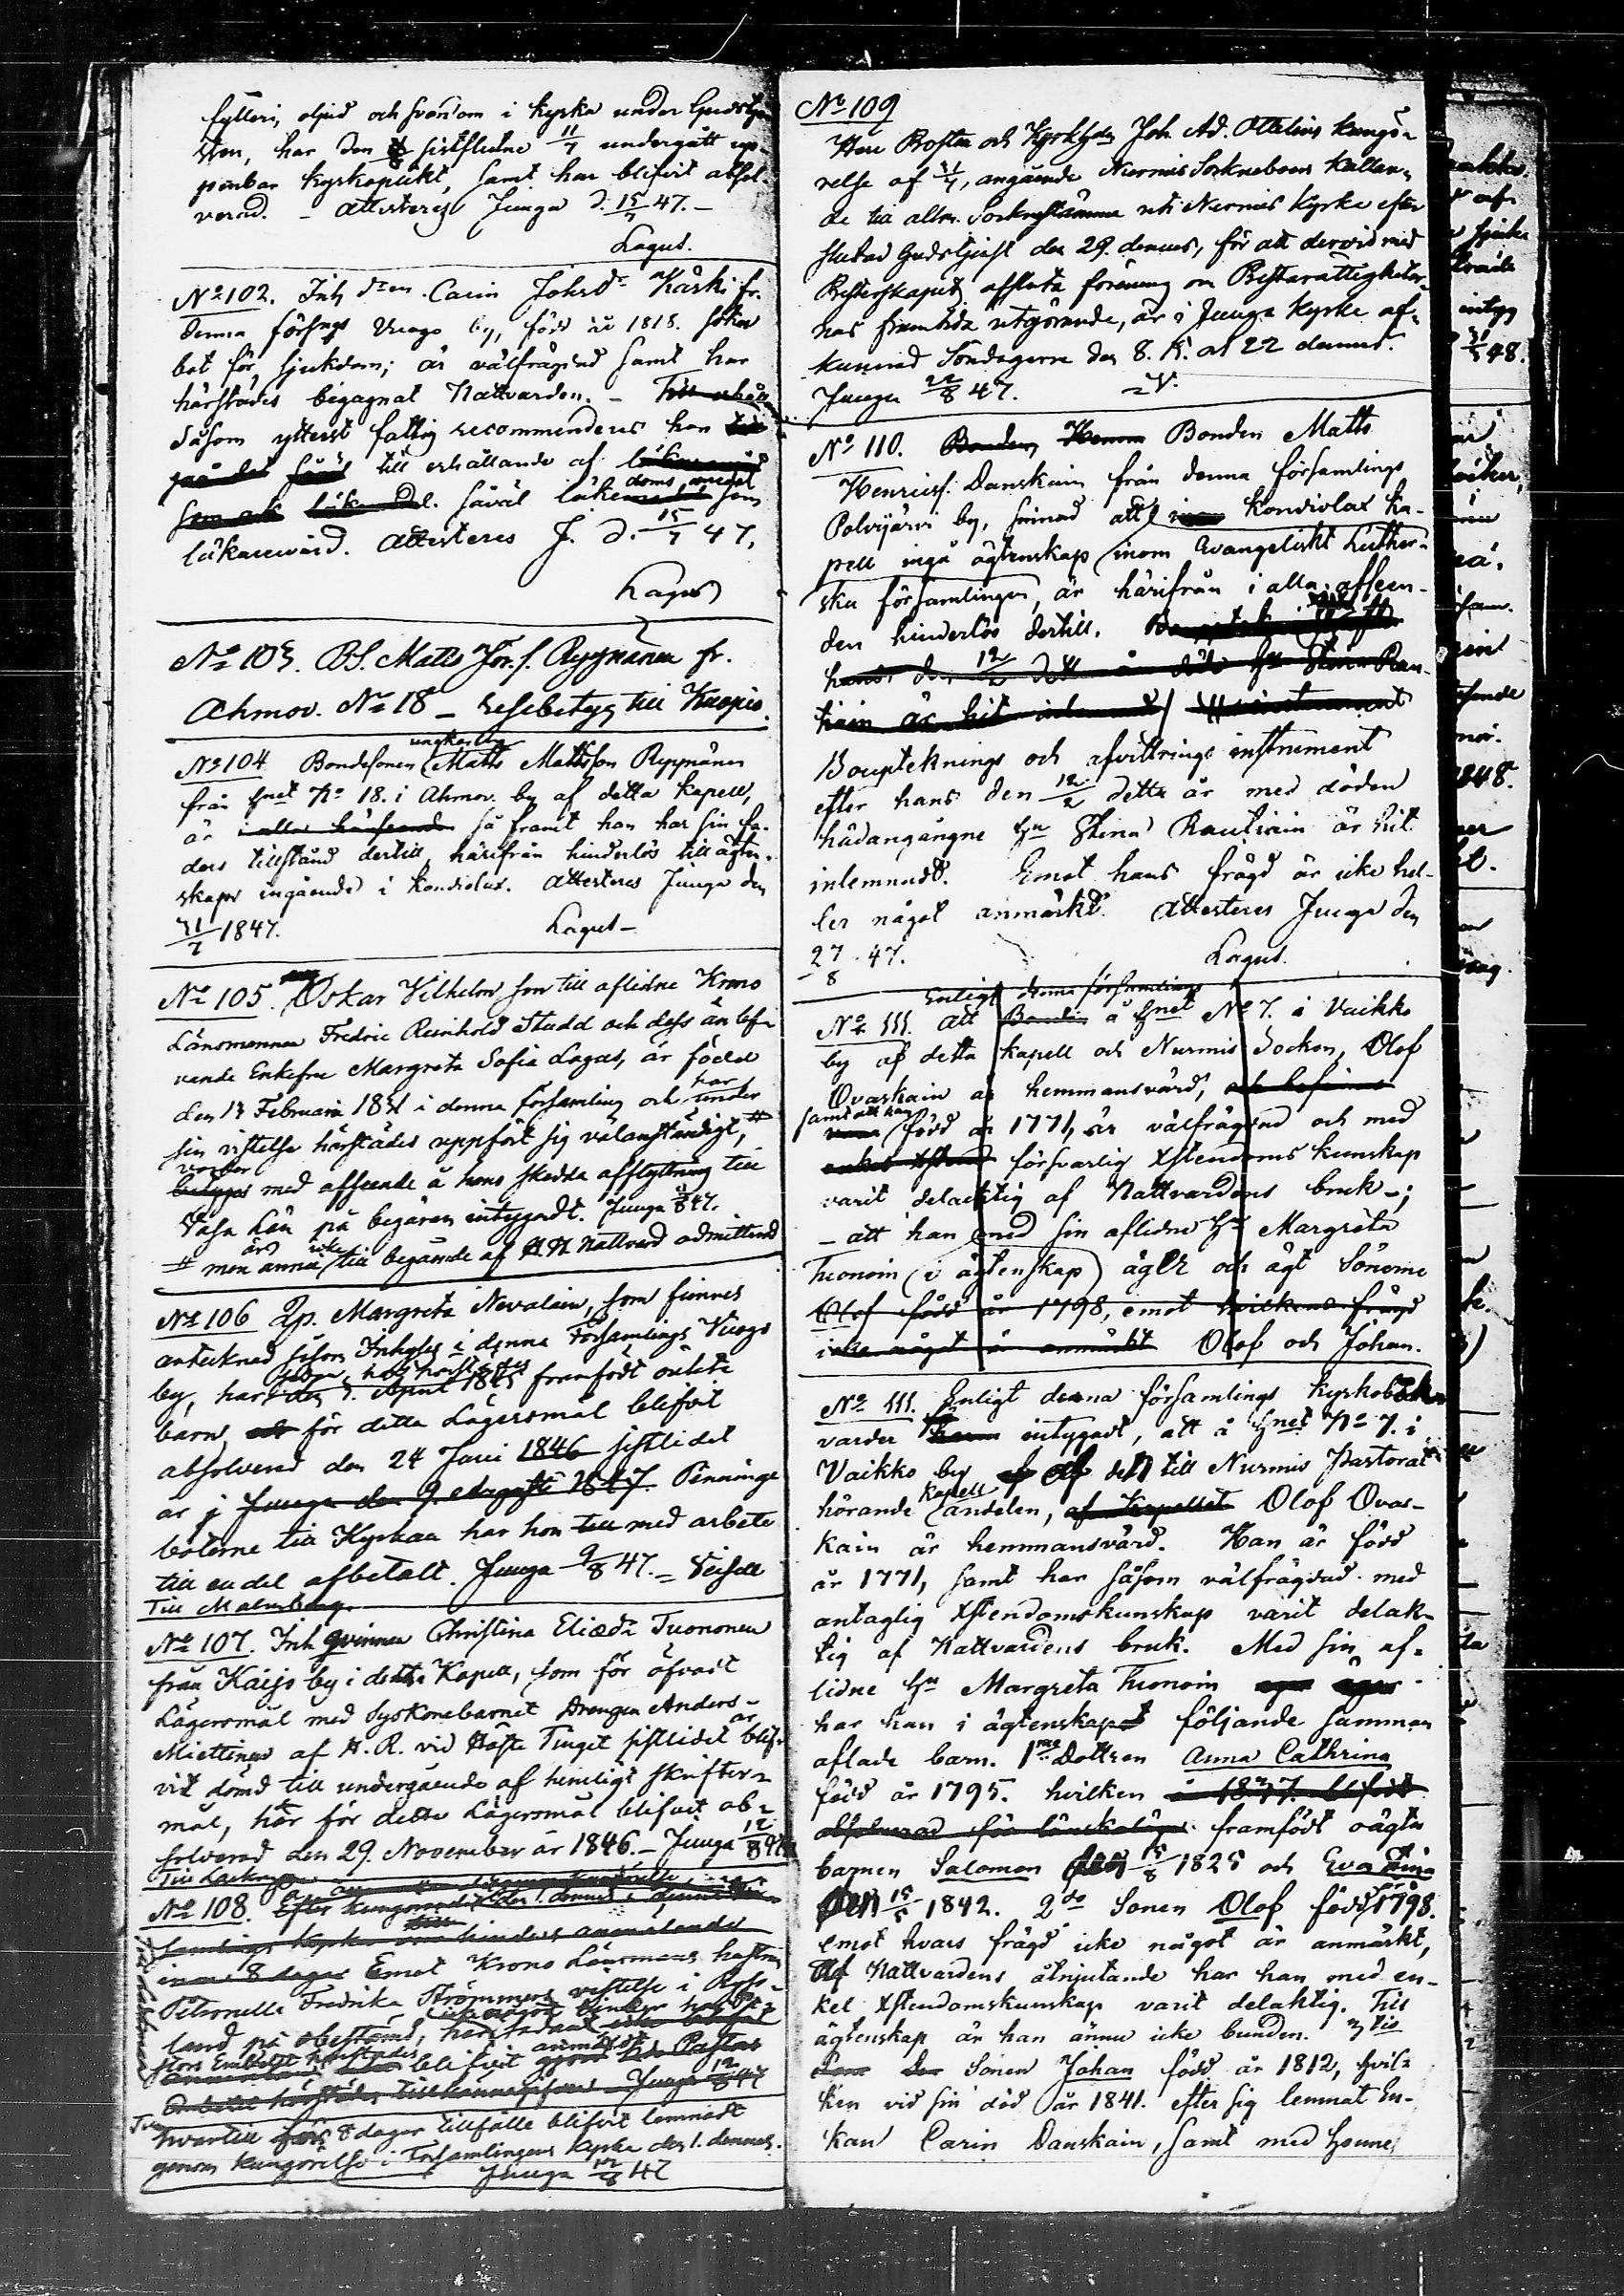 fylleri, oljud och svordom i kyrka under Gudstje-
sten, har den sistflutne 11/7 undergått up-
penbar kyrkoplikt, samt har blifvit absol-
verad. - Attesteras Juuga d. 15/7 47. -
Lagus.
No 102. Inh Carin Johsdr Käski fr.
denna förs:ngs Vuogo by, född år 1818. söker
bot för sjukdom; är välfrägdad samt har
härstädes begagnat Nattvarden. -
Såsom ytterst fattig recommenderas hon
till erhållande af
såväl läkemedel som
läkarevård. Attesteras J. d. 15/7 47,
Lagus
No 103. BS. Matts Joh. s. Ryynänen fr.
Ahmov. No 18 - resebetyg till Kuopio.
No 104 Bondesonen ungkarlen Matts Mattsson Ryynänen
från Hmet No 18. i Ahmov. by af detta kapell,
är i alla hänseende så framt han har sin fa-
ders tillstånd dertill, härifrån hinderlös till ägten-
skaps ingående i Kondiolax. Attesteras Juuga den
31/7 1847. Lagus -
No 105. Oskar Vilhelm son till aflidne Krono
Länsmannen Fredric Reinhold Studd och dess än lef-
vande Enkefru Margreta Sofia Lagus, är född
den 13 Februari 1831 i denna församling och har under
sin vistelse härstädes uppfört sig välanständigt, #
varder betyges med afseende å hans skedda afflyttning till
Vasa Län på begäran intygadt. Juuga 47.
# men ännu är icke till begående af H. H. Nattvard admitterad
No 106 Qp. Margreta Nevalain, som finnes
antecknad såsom Inhyses i denna Församlings Vuogo
by, har den 3. April 1845 framfödt oäkta
barn, för detta Lägersmål blifvit
absolverad den 24 Juni 1846 sistlidet
år i Juuga den 9. Augusti 1847. Penninge
böterne till Kyrkan har hon till med arbete
till en del afbetalt. Juuga 9/8 47. =
Till Malmberg.
No 107. Inh qvinnan Christina Eliædr Tuononen
från Kaijo by i detta Kapell, som för öfvadt
Lägersmål med syskonebarnet Drengen Anders
Miettinen af H. R. vid Höste Tinget sistlidet år blif-
vit dömd till undergående af hemligt skrifter-
mål, här för detta Lägersmål blifvit ab-
solverad den 29. November år 1846. - Juuga 12/8 47
No 108. Efter
samlings kyrka hinders anmälande
inom 8 dagar Emot Krono Länsmans hustrun
Petronella Fredrika Strömmers vistelse i Ryss-
land på obestämd,
stors Embetet härstädes blifvit anmäldt
Embetet härstädes tillkännagifvas Juuga 12/8 47
hvartill 8 dagar tillfälle blifvit lemnadt
genom kungörelse i Församlingens kyrka den 1. dennes.
Juuga 12/8 47
No 109
Herr Prosten och Kyrkhden Joh. Ad. Ottelins kungö-
relse af 31/7, angående Nurmis Sockneboers kallan-
de till allm. Sockenstämma uti Nurmis Kyrka efter
slutad Gudstjenst den 29. dennes, för att dervid med
Presterskapet afsluta förening om Prestarättigheter-
nas framtida utgörande, är i Juuga Kyrka af-
kunnad Söndagarne den 8. 15. och 22 dennes.
Juuga 22/8 47.
No 110. Bonden Bonden Matts
Henricss. Danskain från denna församlings
Polvijärvi by, sinnad att i Kondiolax ka-
pell ingå ägtenskap inom Evangeliskt Luther-
ska församlingen, är härifrån i alla afseen-
den hinderlös dertill.
hans den 12/2 detta år döde Hu Stina Rau-
tiain är hit inlemnadt
Boupteknings och afvittrings instrument
efter hans den 12/2 detta år med döden
hädangångne Hu Stina Rautiain är hit
inlemnadt. Emot hans frägd är icke hel-
ler något anmärkt. Attesteras Juuga den
27/8 47. Lagus.
Enligt denna församlings
No 111. Att Bonden å Hmet No 7. i Vaikko
by af detta kapell och Nurmis Socken, Olof
Ovaskain är hemmansvärd, och
samt att han född år 1771, är välfrägdad och med
enkel Xstend försvarlig Xstendoms kunskap
varit delacktig af Nattvardens bruk -;
- att han med sin aflidne Hu Margreta
Tuonoin (i ägtenskap) äger och ägt Sönerne
Olof född år 1798, emot hvilkens frägd
icke något är anmärkt Olof och Johan.
No 111. Enligt denna församlings kyrkobok
varder intygadt, att å Hmet No 7. i
Vaikko by af den till Nurmis Pastorat
hörande kapell andelen, af kapellet Olof Ovas-
kain är hemmansvärd. Han är född
år 1771, samt har såsom välfrägdad med
antaglig Xstendomskunskap varit delak-
tig af Nattvardens bruk. Med sin af-
lidne Hu Margreta Tuonoin
har han i ägtenskapet följande samman
aflade barn. 1mo Dottren Anna Cathrina
född år 1795. hvilken
absolverad för lönskaläge framfödt oägta
barnen Salomon den 15/8 1825 och Eva Stina
den 15/5 1842. 2do Sonen Olof född år 1798.
emot hvars frägd icke något är anmärkt,
Af Nattvardens åtnjutande har han med en-
kel Xstendomskunskap varit delaktig. Till
ägtenskap är han ännu icke bunden. 3tio
Sonen Johan född år 1812, hvil-
ken vid sin död år 1841. efter sig lemnat En-
kan Carin Danskain, samt med henne